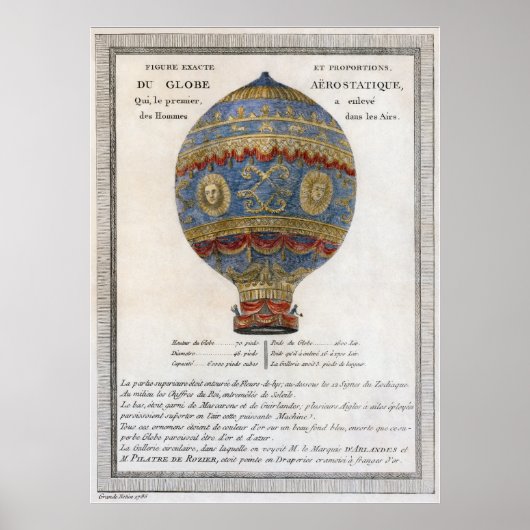 FIGURE EXACTE ET PROPORTIONS,
DU GLOBE AËROSTATIQUE,
Qui, le premier, a enlevé
des Hommes dans les Airs.
Hauteur du Globe 70 pieds Poids du Globe 1600 Liv.
Diametre 46 pieds Poids qu'il a enlevé 16 à 1700 Liv.
Capacité 60000 pieds cubes La Gallerie avoit 3 pieds de largeur.
La partie supérieure étoit entourée de Fleurs-de-lys; au-dessous les 12 Signes du Zodiaque.
Au milieu les Chiffres du Roi, entremêlés de Soleils.
Le bas, étoit garni de Mascarons et de Guirlandes; plusieurs Aigles à ailes éployées
paroissoient suporter en l'air cette puissante Machine.
Tous ces ornemens étoient de couleur d'or sur un beau fond bleu, ensorte que ce su-
perbe Globe paroissoit être d'or et d'azur.
La Gallerie circulaire, dans laquelle on voyoit M. le Marquis D'ARLANDES et
M. PILATRE DE ROZIER, étoit peinte en Draperies cramoisi à franges d'or.
1786